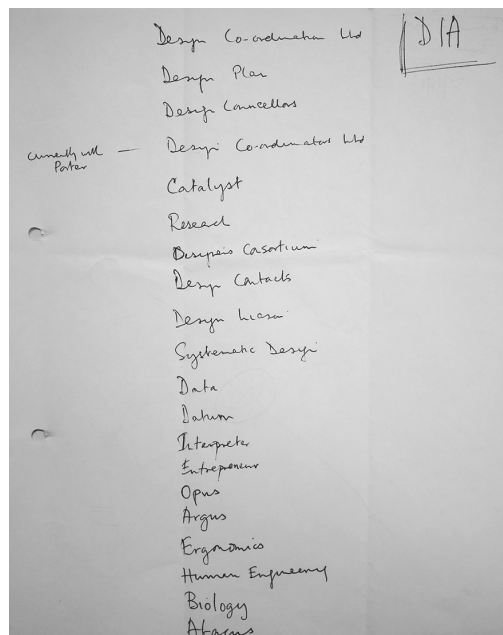 DIA
Design Co-ordination Ltd
Design Plan
Design Councellors
currently with
Porter
— Design Co-ordinators Ltd
Catalyst
Research
Designers Consortium
Design Contacts
Design Liason
Systematic Design
Data
Datum
Interpreter
Entrepreneur
Opus
Argus
Ergonomics
Human Engineering
Biology
Abacus